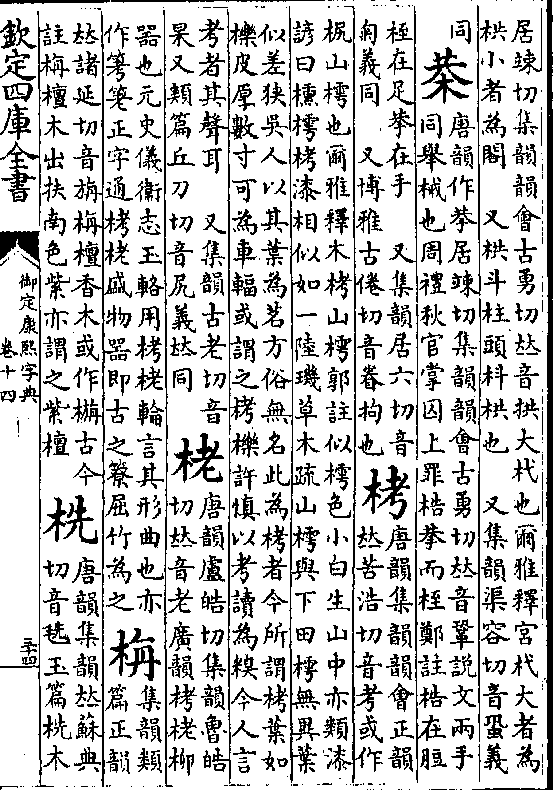 居竦切集韻韻會古勇切𠀤音拱大杙也爾雅釋宮杙大者為
栱小者為閣　又栱斗柱頭枓栱也　又集韻渠容切音蛩義
同　𣐺　唐韻作𢫦居竦切集韻韻會古勇切𠀤音鞏說文兩手
同舉械也周禮秋官掌囚上罪梏拲而桎鄭註梏在脰
桎在足拲在手　又集韻居六切音
匊義同　又博雅古倦切音眷拘也　栲　唐韻集韻韻會正韻
𠀤苦浩切音考或作
𣐊山樗也爾雅釋木栲山樗郭註似樗色小白生山中亦類漆
諺曰櫄樗栲漆相似如一陸璣草木疏山樗與下田樗無異葉
似差狹吳人以其葉為茗方俗無名此為栲者今所謂栲葉如
櫟皮厚數寸可為車輻或謂之栲櫟許慎以考讀為糗今人言
考者其聲耳　又集韻古老切音
杲又類篇丘刀切音尻義𠀤同　栳　唐韻盧皓切集韻魯皓
切𠀤音老廣韻栲栳柳
器也元史儀衛志玉輅用栲栳輪言其形曲也亦
作䇢筊正字通栲栳盛物器即古之䉛屈竹為之　栴　集韻類
篇正韻
𠀤諸延切音旃栴檀香木或作㮵古今
註栴檀木出扶南色紫亦謂之紫檀　㭠　唐韻集韻𠀤蘇典
切音毨玉篇㭠木
欽定四庫全書
御定康熙字典
卷十四
三十四